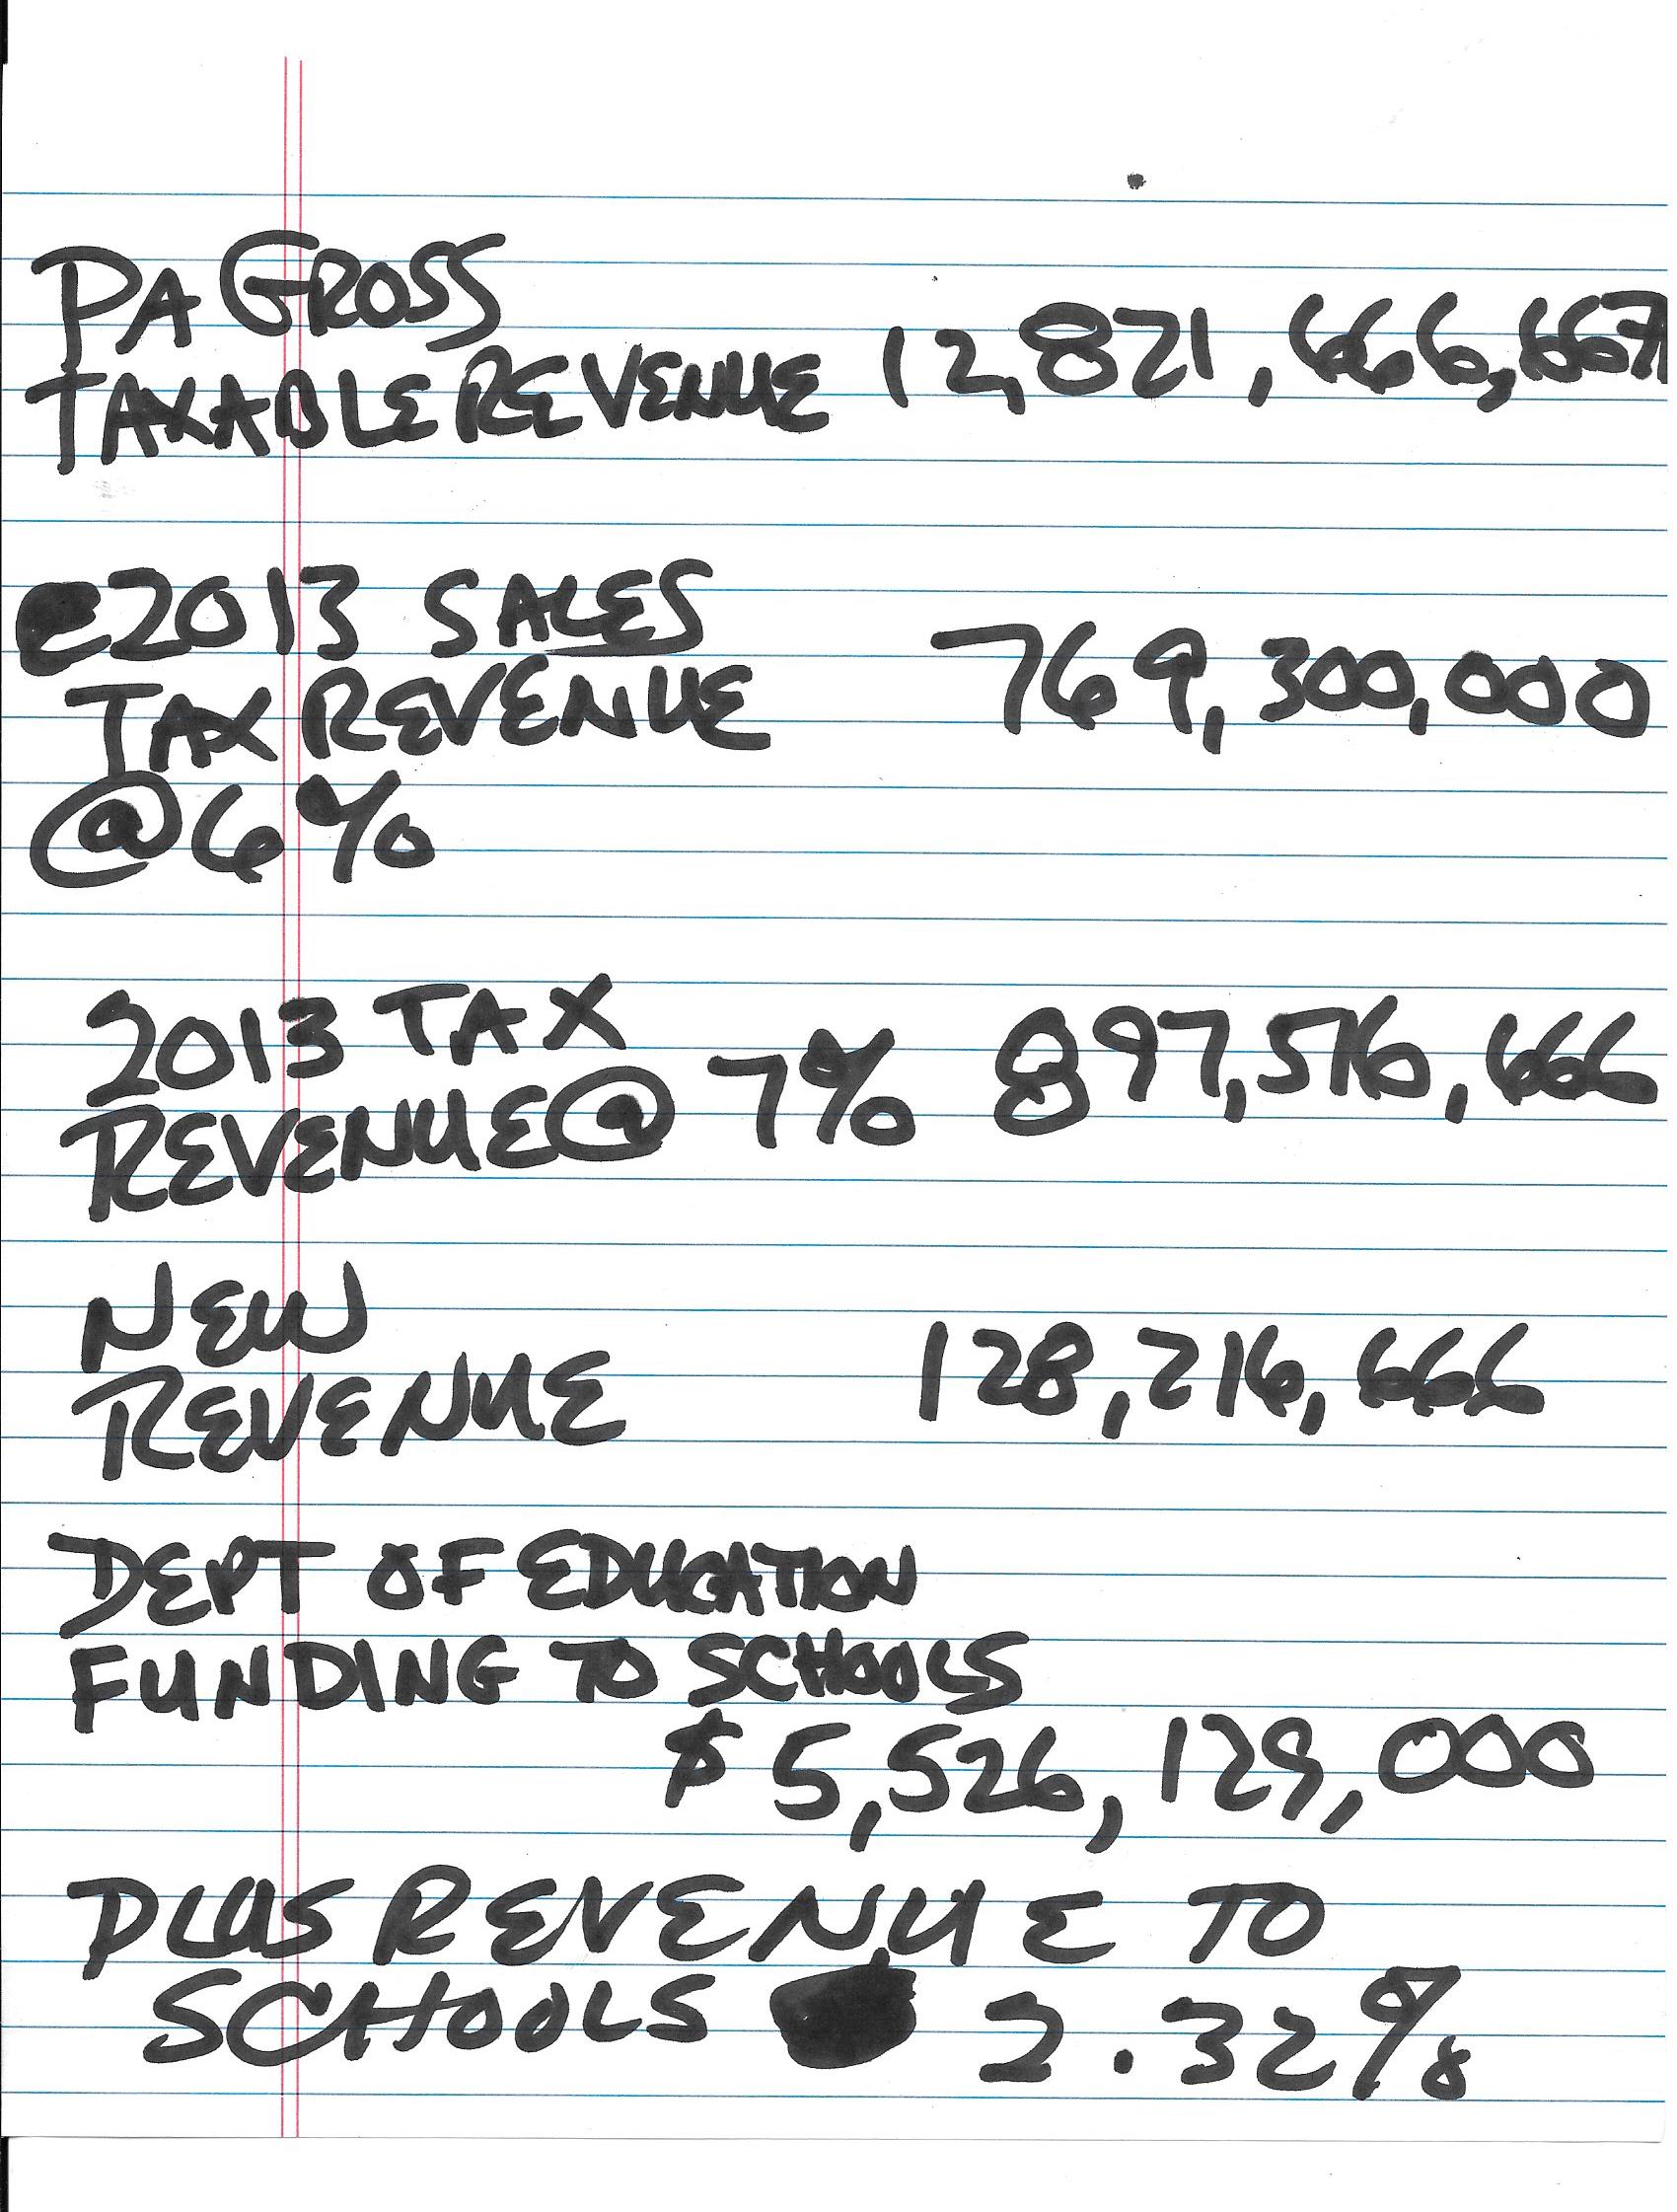 PA GROSS
TAXABLE REVENUE 12,821,666,667
@2013 SALES
TAX REVENUE 769,300,000
@6%
2013 TAX
REVENUE@ 7% 897,516,666
NEW
REVENUE 128,216,666
DEPT OF EDUCATION
FUNDING TO SCHOOLS
$5,526,129,000
PLUS REVENUE TO
SCHOOLS 2.32%